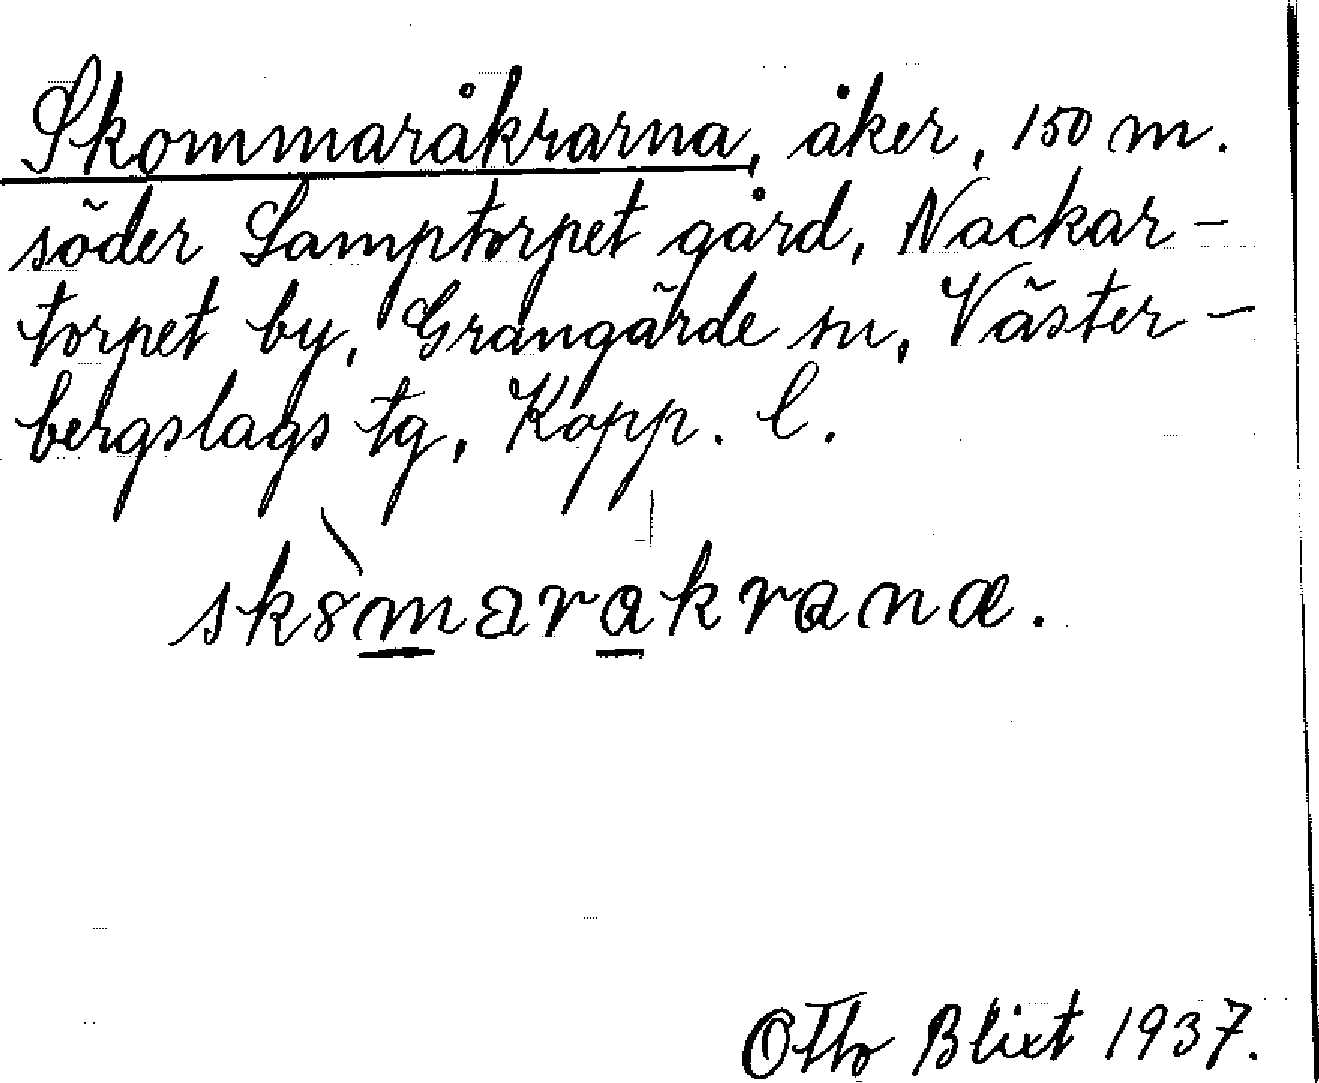 Skommaråkrarna, åker, 150 m.
söder Lamptorpet gård, Nackar-
torpet by, Grangärde sn, Väster-
bergslags tg, Kopp. l.
sk8̀marakrana.
Otto Blixt 1937.